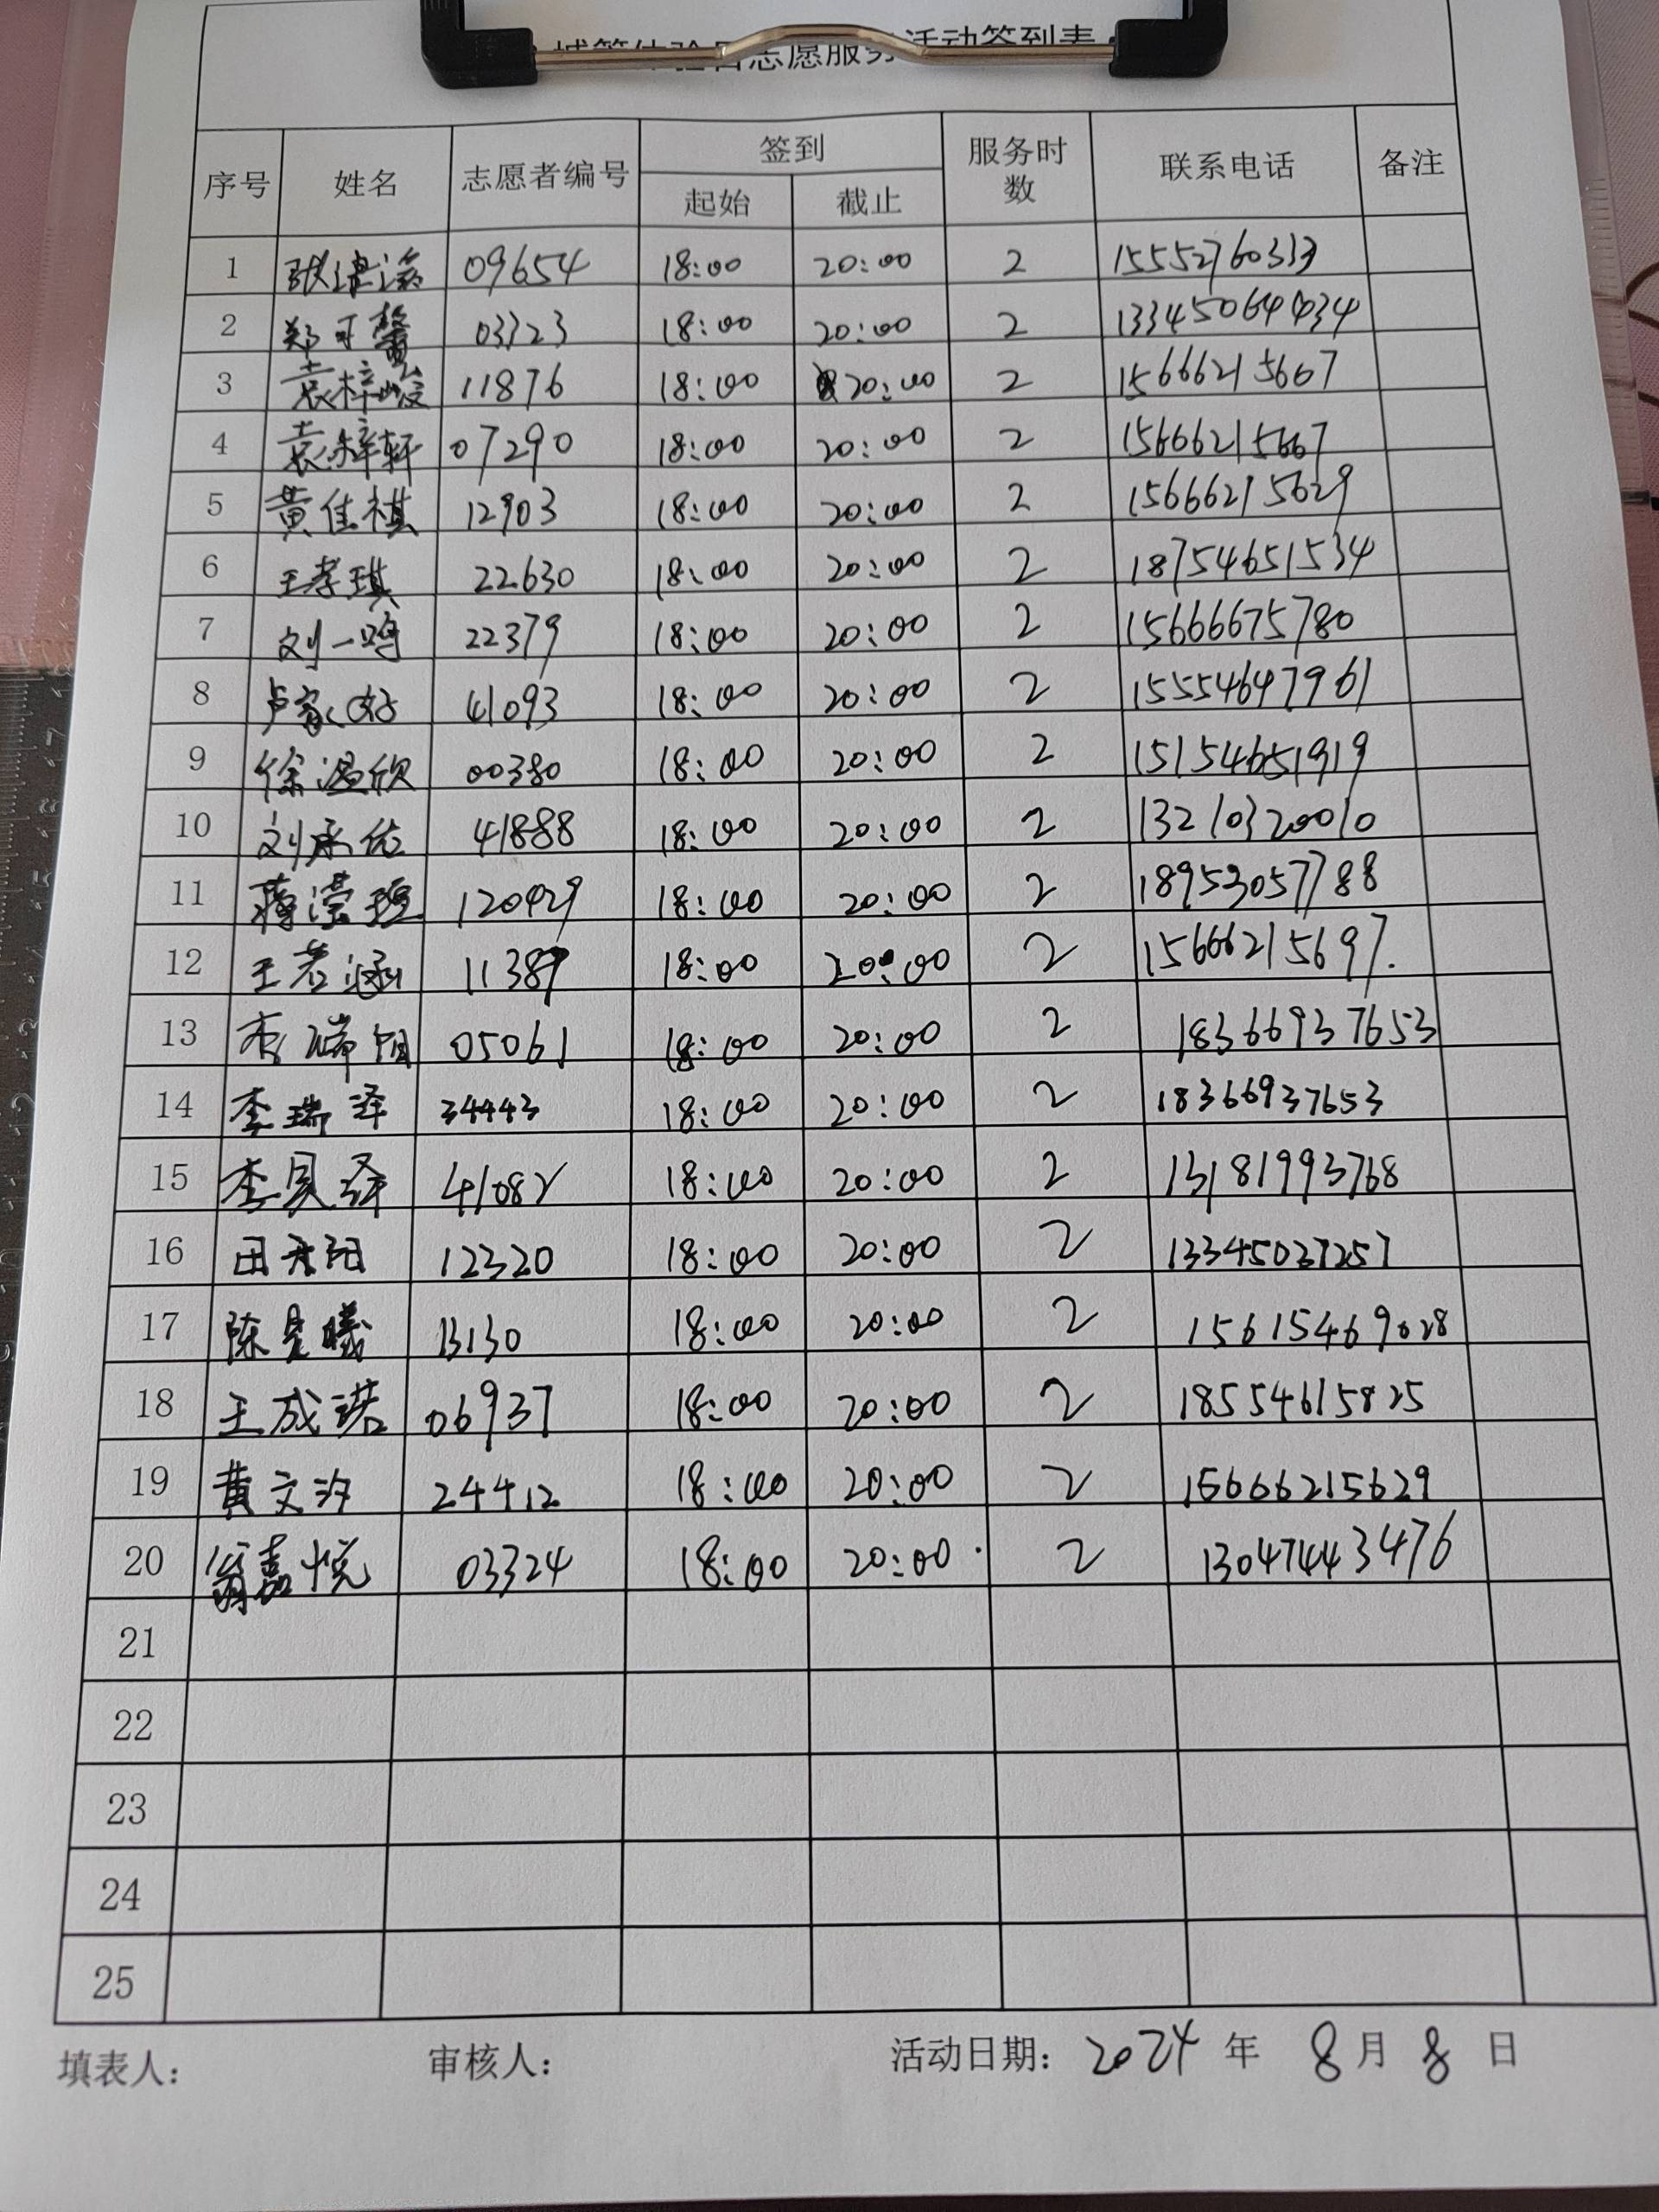 城管体验日志愿服务活动签到表
序号 姓名 志愿者编号 签到 服务时数 联系电话 备注
起始 截止
1 09654 18:00 20:00 2 15552760313
2 郑可馨 03323 18:00 20:00 2
3 袁梓峻 11876 18:00 20:00 2 15666215667
4 袁梓轩 07290 18:00 20:00 2 15666215667
5 黄佳祺 12903 18:00 20:00 2 15666215629
6 王孝琪 22630 18:00 20:00 2 18754651534
7 刘一鸣 22379 18:00 20:00 2 15666675780
8 卢家好 41093 18:00 20:00 2 15554647961
9 徐温欣 00380 18:00 20:00 2 15154651919
10 刘承佑 41888 18:00 20:00 2 13210320010
11 蒋滢 120429 18:00 20:00 2 18953057788
12 王若涵 11389 18:00 20:00 2 15666215697.
13 李瑞恒 05061 18:00 20:00 2 18366937653
14 李瑞泽 34443 18:00 20:00 2 18366937653
15 李贝泽 41082 18:00 20:00 2 13181993768
16 田丹阳 12320 18:00 20:00 2 13345037257
17 陈星曦 13130 18:00 20:00 2 15615469028
18 王成诺 06937 18:00 20:00 2 18554615825
19 黄文汐 24412 18:00 20:00 2 15666215629
20 翁嘉悦 03324 18:00 20:00 2 13047443476
21
22
23
24
25
填表人： 审核人： 活动日期： 2024 年 8 月 8 日